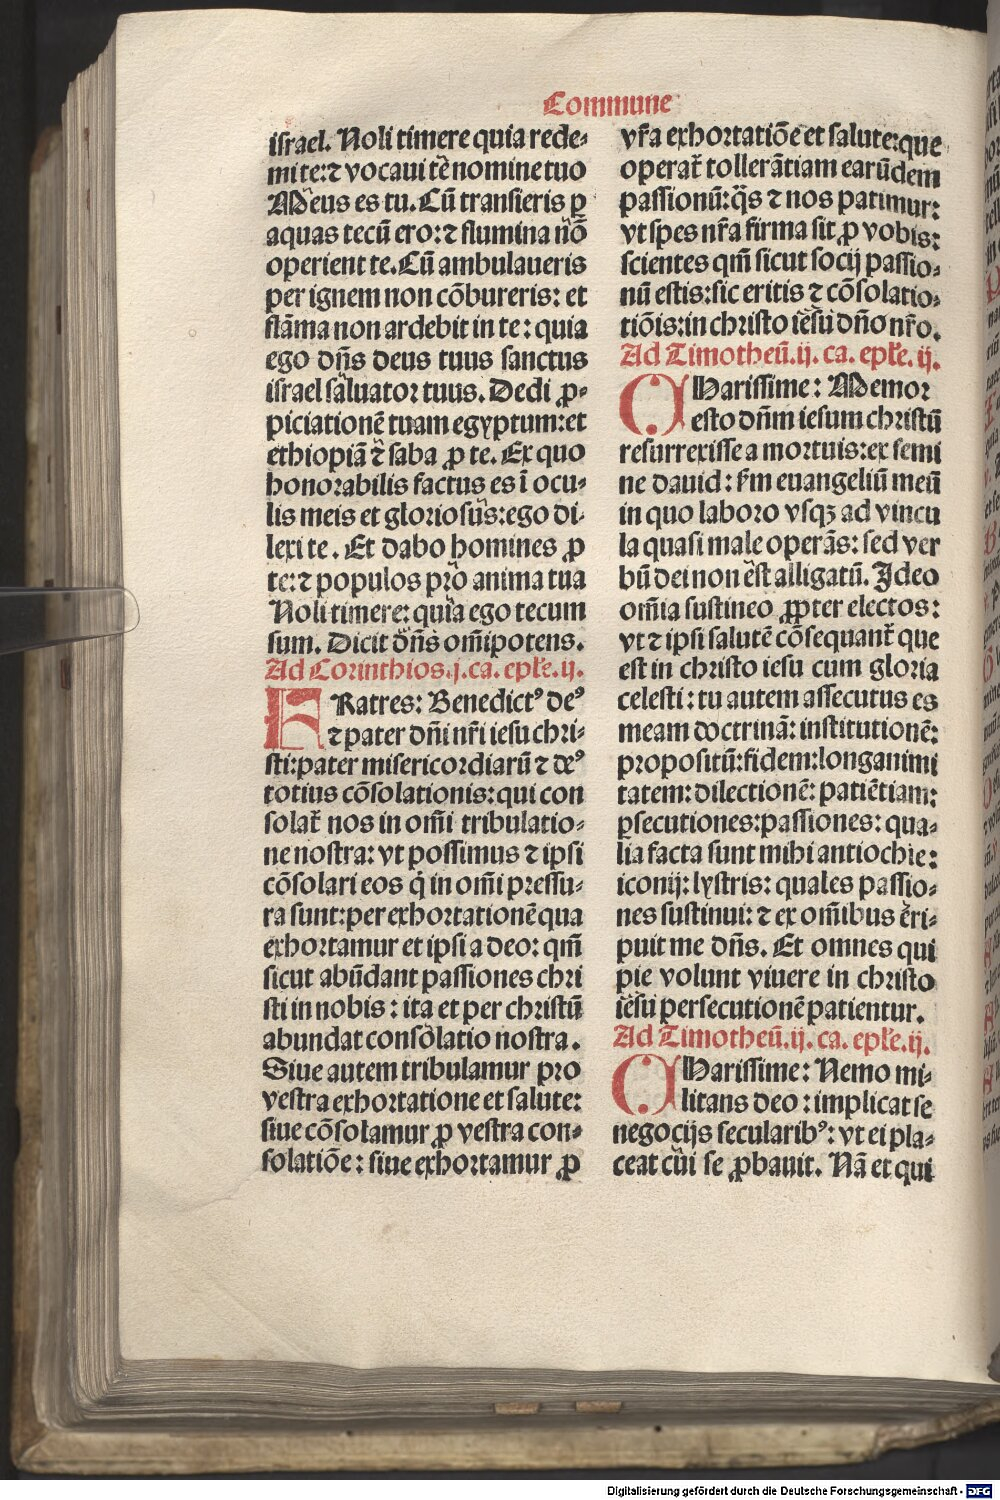 Commune
israel. Noli timere quia rede⸗
mi te: ⁊ vocaui te nomine tuo
Meus es tu. Cū transieris ꝑ
aquas tecū ero: ⁊ flumina nō
operient te. Cū ambulaueris
per ignem non cōbureris: et
flāma non ardebit in te: quia
ego dn̄s deus tuus sanctus
israel saluator tuus. Dedi ꝓ⸗
piciationē tuam egyptum: et
ethiopiā ⁊ saba ꝓ te. Ex quo
honorabilis factus es ī ocu⸗
lis meis et gloriosus: ego di⸗
lexi te. Et dabo homines ꝓ
te: ⁊ populos pro anima tua
Noli timere: quia ego tecum
sum. Dicit dn̄s om̄ipotens.
Ad Corinthios. j. ca. epl̄e. ij.
FRatres: Benedictꝰ deꝰ
⁊ pater dn̄i nr̄i iesu chri⸗
sti: pater misericordiarū ⁊ deꝰ
totius cōsolationis: qui con
solat̄ nos in om̄i tribulatio⸗
ne nostra: vt possimus ⁊ ipsi
cōsolari eos q̇ in om̄i pressu⸗
ra sunt: per exhortationē qua
exhortamur et ipsi a deo: qm̄
sicut abūdant passiones chri
sti in nobis: ita et per christū
abundat consolatio nostra.
Siue autem tribulamur pro
vestra exhortatione et salute:
siue cōsolamur ꝓ vestra con⸗
solatiōe: siue exhortamur ꝓ
vr̄a exhortatiōe et salute: que
operat̄ tollerātiam earūdem
passionū: q̄s ⁊ nos patimur:
vt spes nr̄a firma sit ꝓ vobis:
scientes qm̄ sicut socij passio⸗
nū estis: sic eritis ⁊ cōsolatio⸗
tiōis: in christo iesu dn̄o nr̄o.
Ad Timotheū. ij. ca. epl̄e. ij.
CHarissime: Memor
esto dn̄m iesum christū
resurrexisse a mortuis: ex semi
ne dauid: ẜm euangeliū meū
in quo laboro vsqꝫ ad vincu
la quasi male operās: sed ver
bū dei non est alligatū. Ideo
om̄ia sustineo ꝓpter electos:
vt ⁊ ipsi salutē cōsequant̄ que
est in christo iesu cum gloria
celesti: tu autem assecutus es
meam doctrinā: institutionē:
propositū: fidem: longanimi
tatem: dilectionē: patiētiam:
ꝑsecutiones: passiones: qua⸗
lia facta sunt mihi antiochie:
iconij: lystris: quales passio⸗
nes sustinui: ⁊ ex om̄ibus eri⸗
puit me dn̄s. Et omnes qui
pie volunt viuere in christo
iesu persecutionē patientur.
Ad Timotheū. ij. ca. epl̄e. ij.
CHarissime: Nemo mi⸗
litans deo: implicat se
negocijs secularibꝰ: vt ei pla⸗
ceat cui se ꝓbauit. Nā et qui
Digitalisierung gefördert durch die Deutsche Forschungsgemeinschaft - DFG